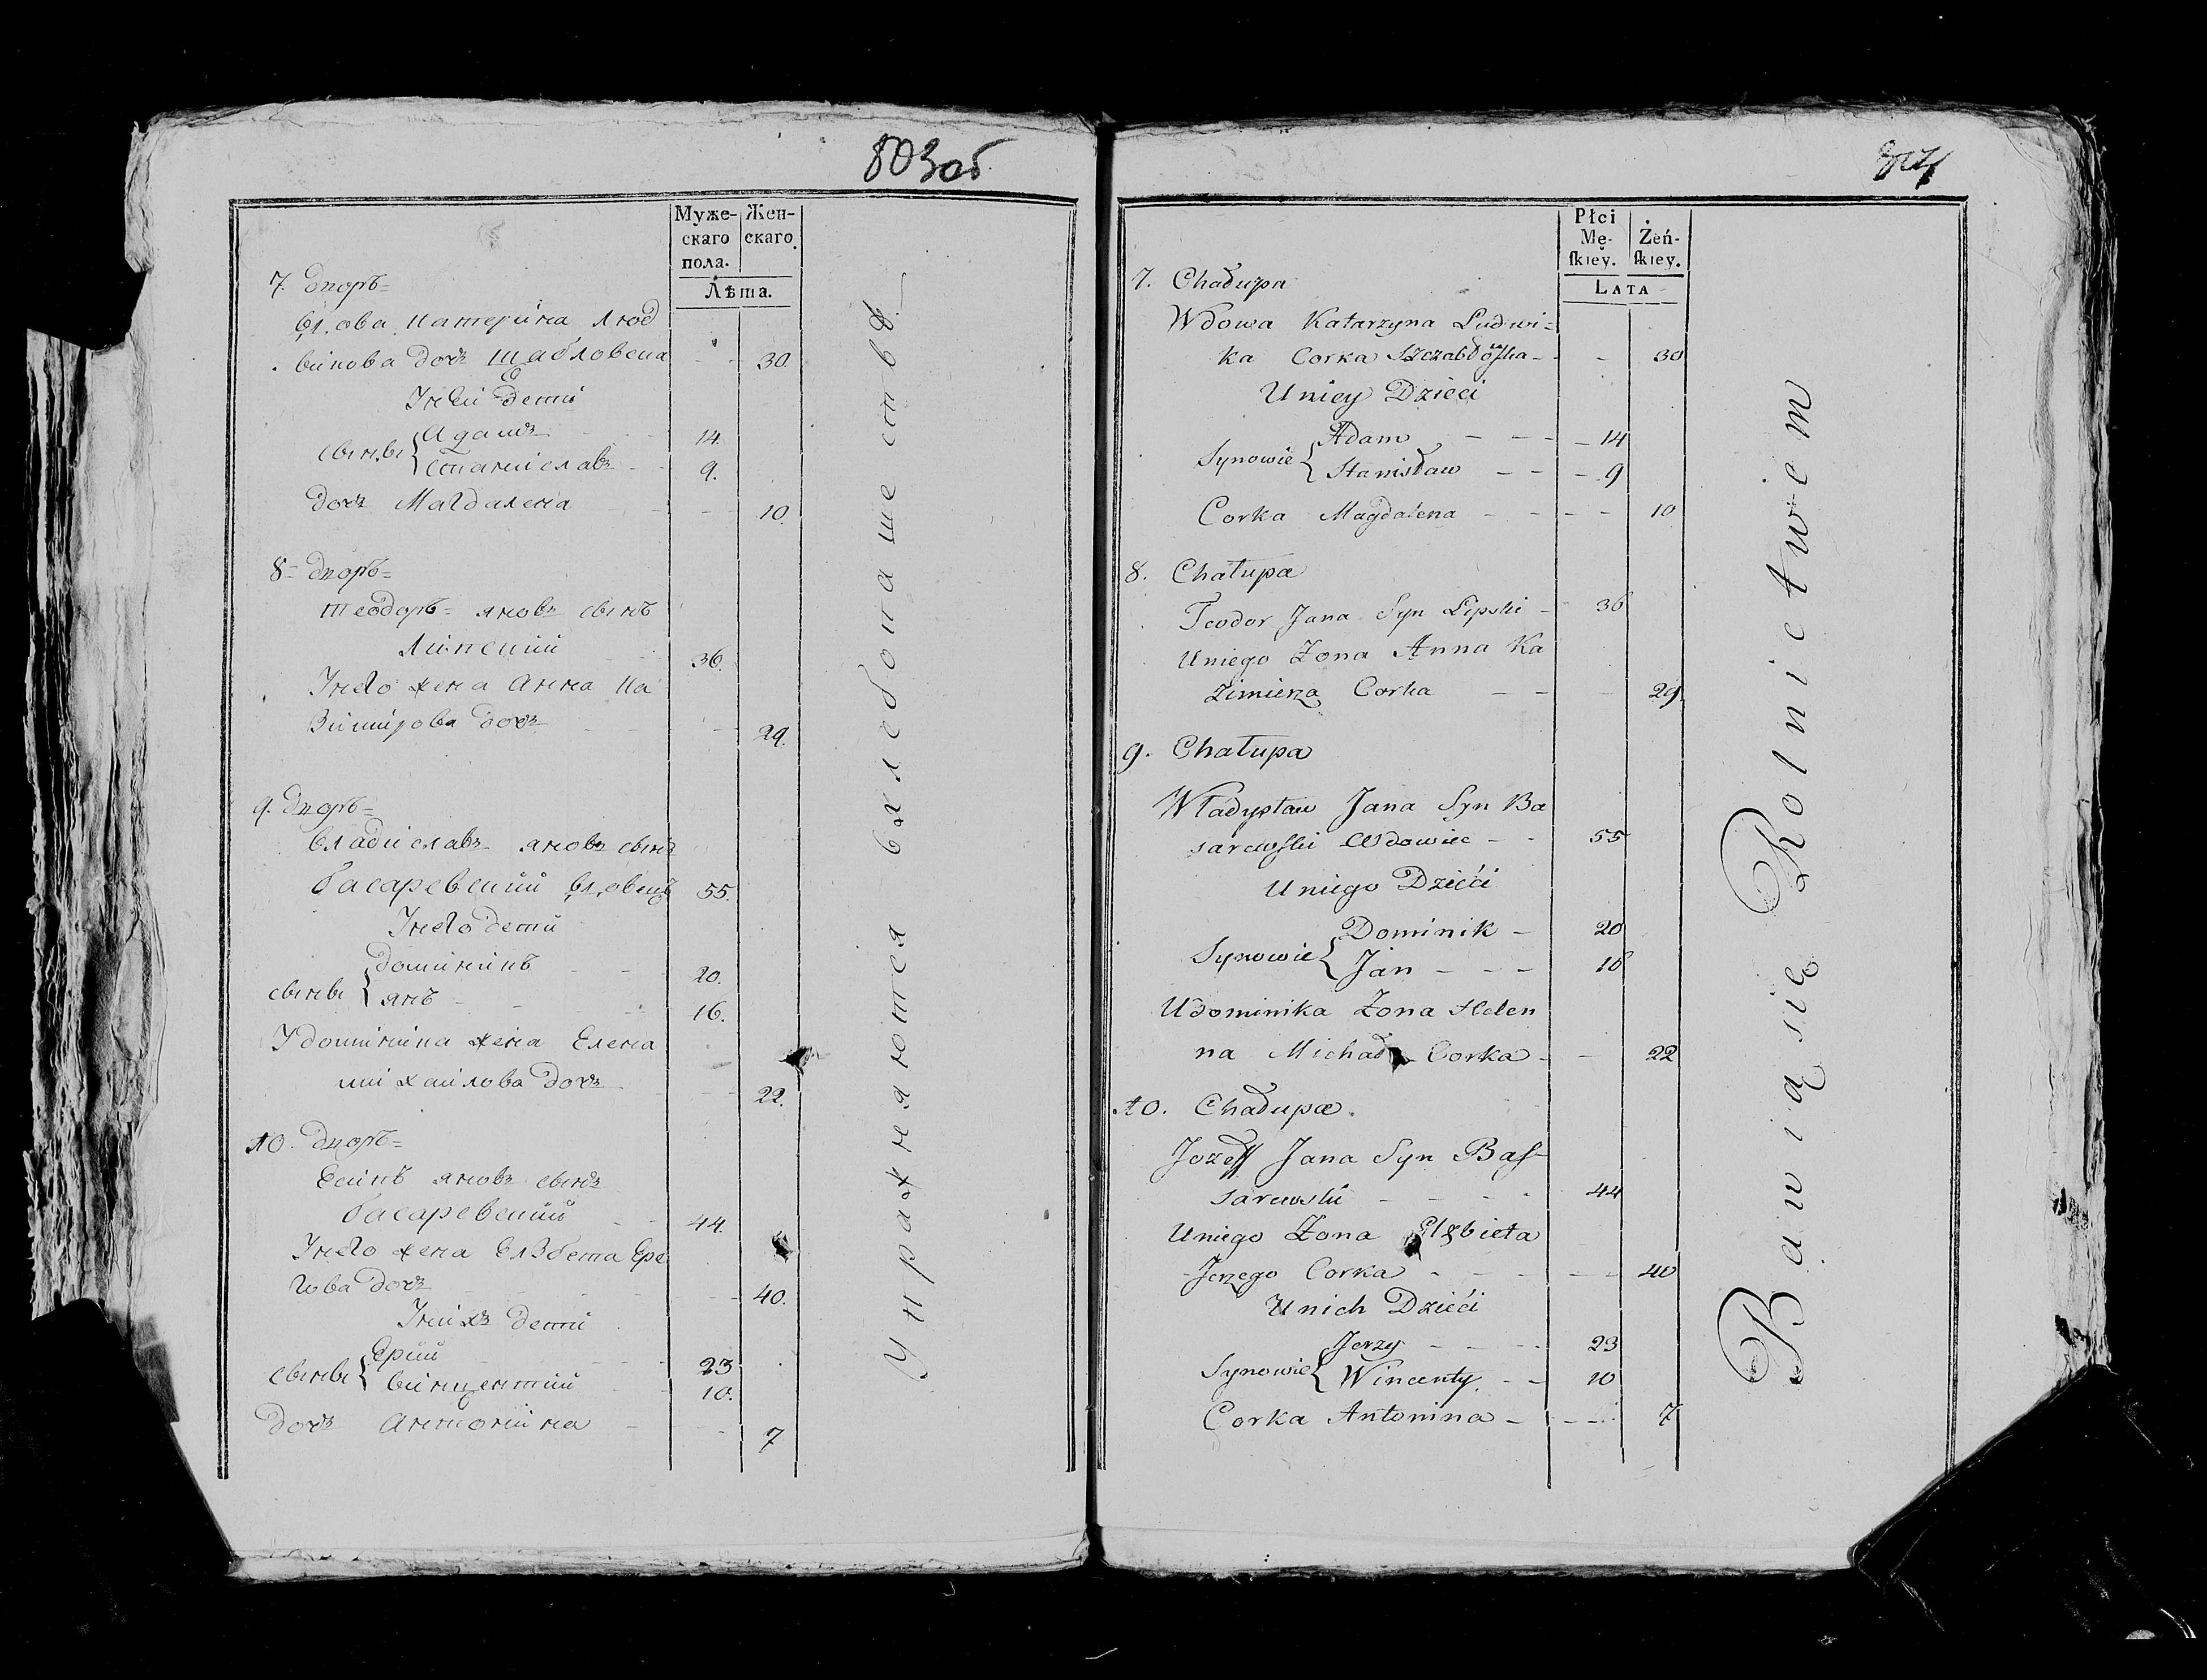 803об
Муже- Жен-
скаго скаго.
пола.
Лѣта.
7. Дворъ
вдова Катерина Люд
викова дочь Шабловска 30.
У неи дети
сыны Адамъ 14.
Станиславъ 9.
дочь Магдалена 10.
8 дворъ
Теодоръ яновъ сынъ
Липский 36.
У него жена Анна Ка
зимирова дочь 29.
9. дворъ
владиславъ яновъ сынъ
басаревский вдовецъ 55.
У него дети
сыны доминикъ 20.
янъ 16.
У доминика жена Елена
михаилова дочь 22.
10. дворъ
Есипъ яновъ сынъ
басаревский 44.
У него жена Елзбета Ере
гова дочь 40.
У нихъ дети
сыны Ерий 23
винцентий 10.
дочь Антонина 7
Упражняются въ хлебопашестве
Płci
Mę- Żeń-
ſkiey. ſkiey.
LATA
7. Chałupa
Wdowa Katarzyna Ludwi=
ka Corka 30
Uniey Dzieci
Synowie Adam 14
Stanisław 9
Corka Magdalena 10
8. Chałupa
Teodor Jana Syn Lipski 36
Uniego Żona Anna Ka
zimierza Corka 29
9. Chałupa
Władysław Jana Syn Ba
sarewski Wdowiec 55
Uniego Dzieći
Synowie Dominik 20
Jan 16
Udominika Żona Helen
na Michała Corka 22
10. Chałupa
Jozeff Jana Syn Baſ
sarewski 44
Uniego Żona Elżbieta
Jerzego Corka 40
Unich Dzieći
Synowie Jerzy 23
Wincenty 10
Corka Antonina 7
Bawią się Rolnictwem